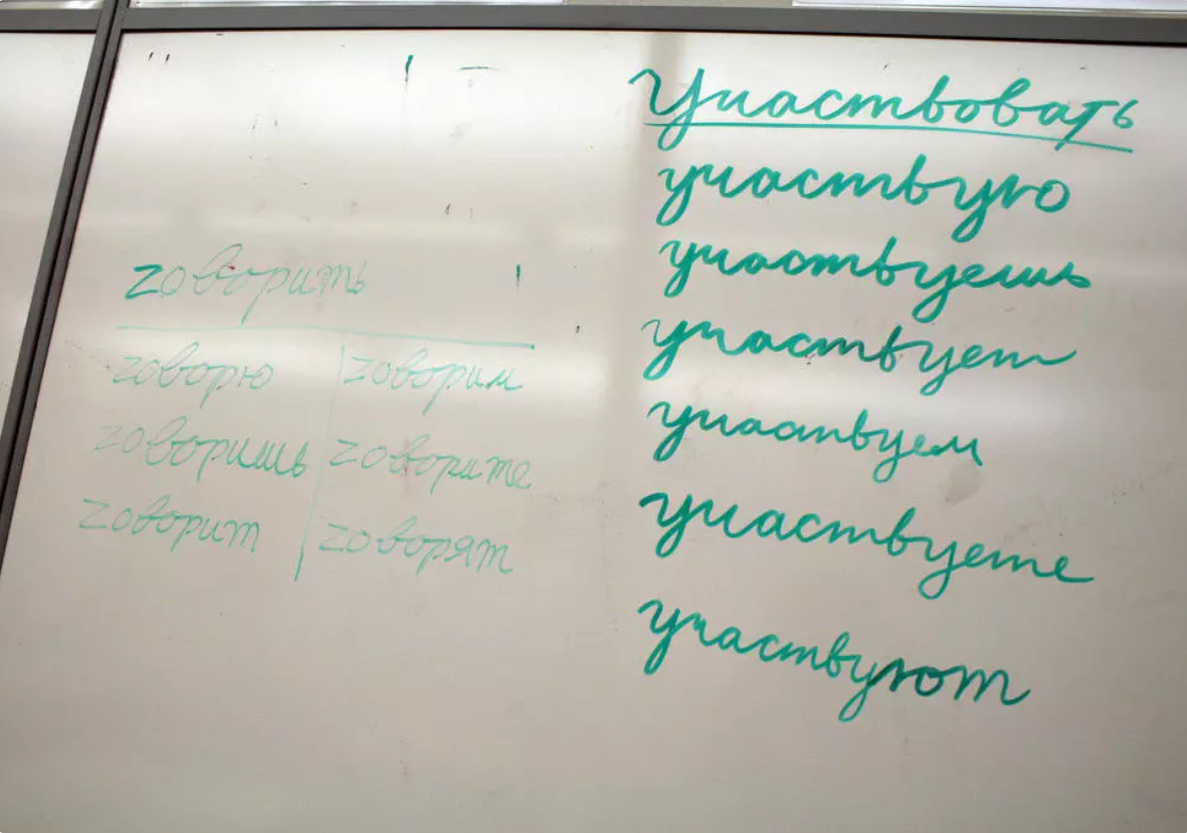 говорить
говорю говорим
говоришь говорите
говорит говорят
Участвовать
участвую
участвуешь
участвует
участвуем
участвуете
участвуют